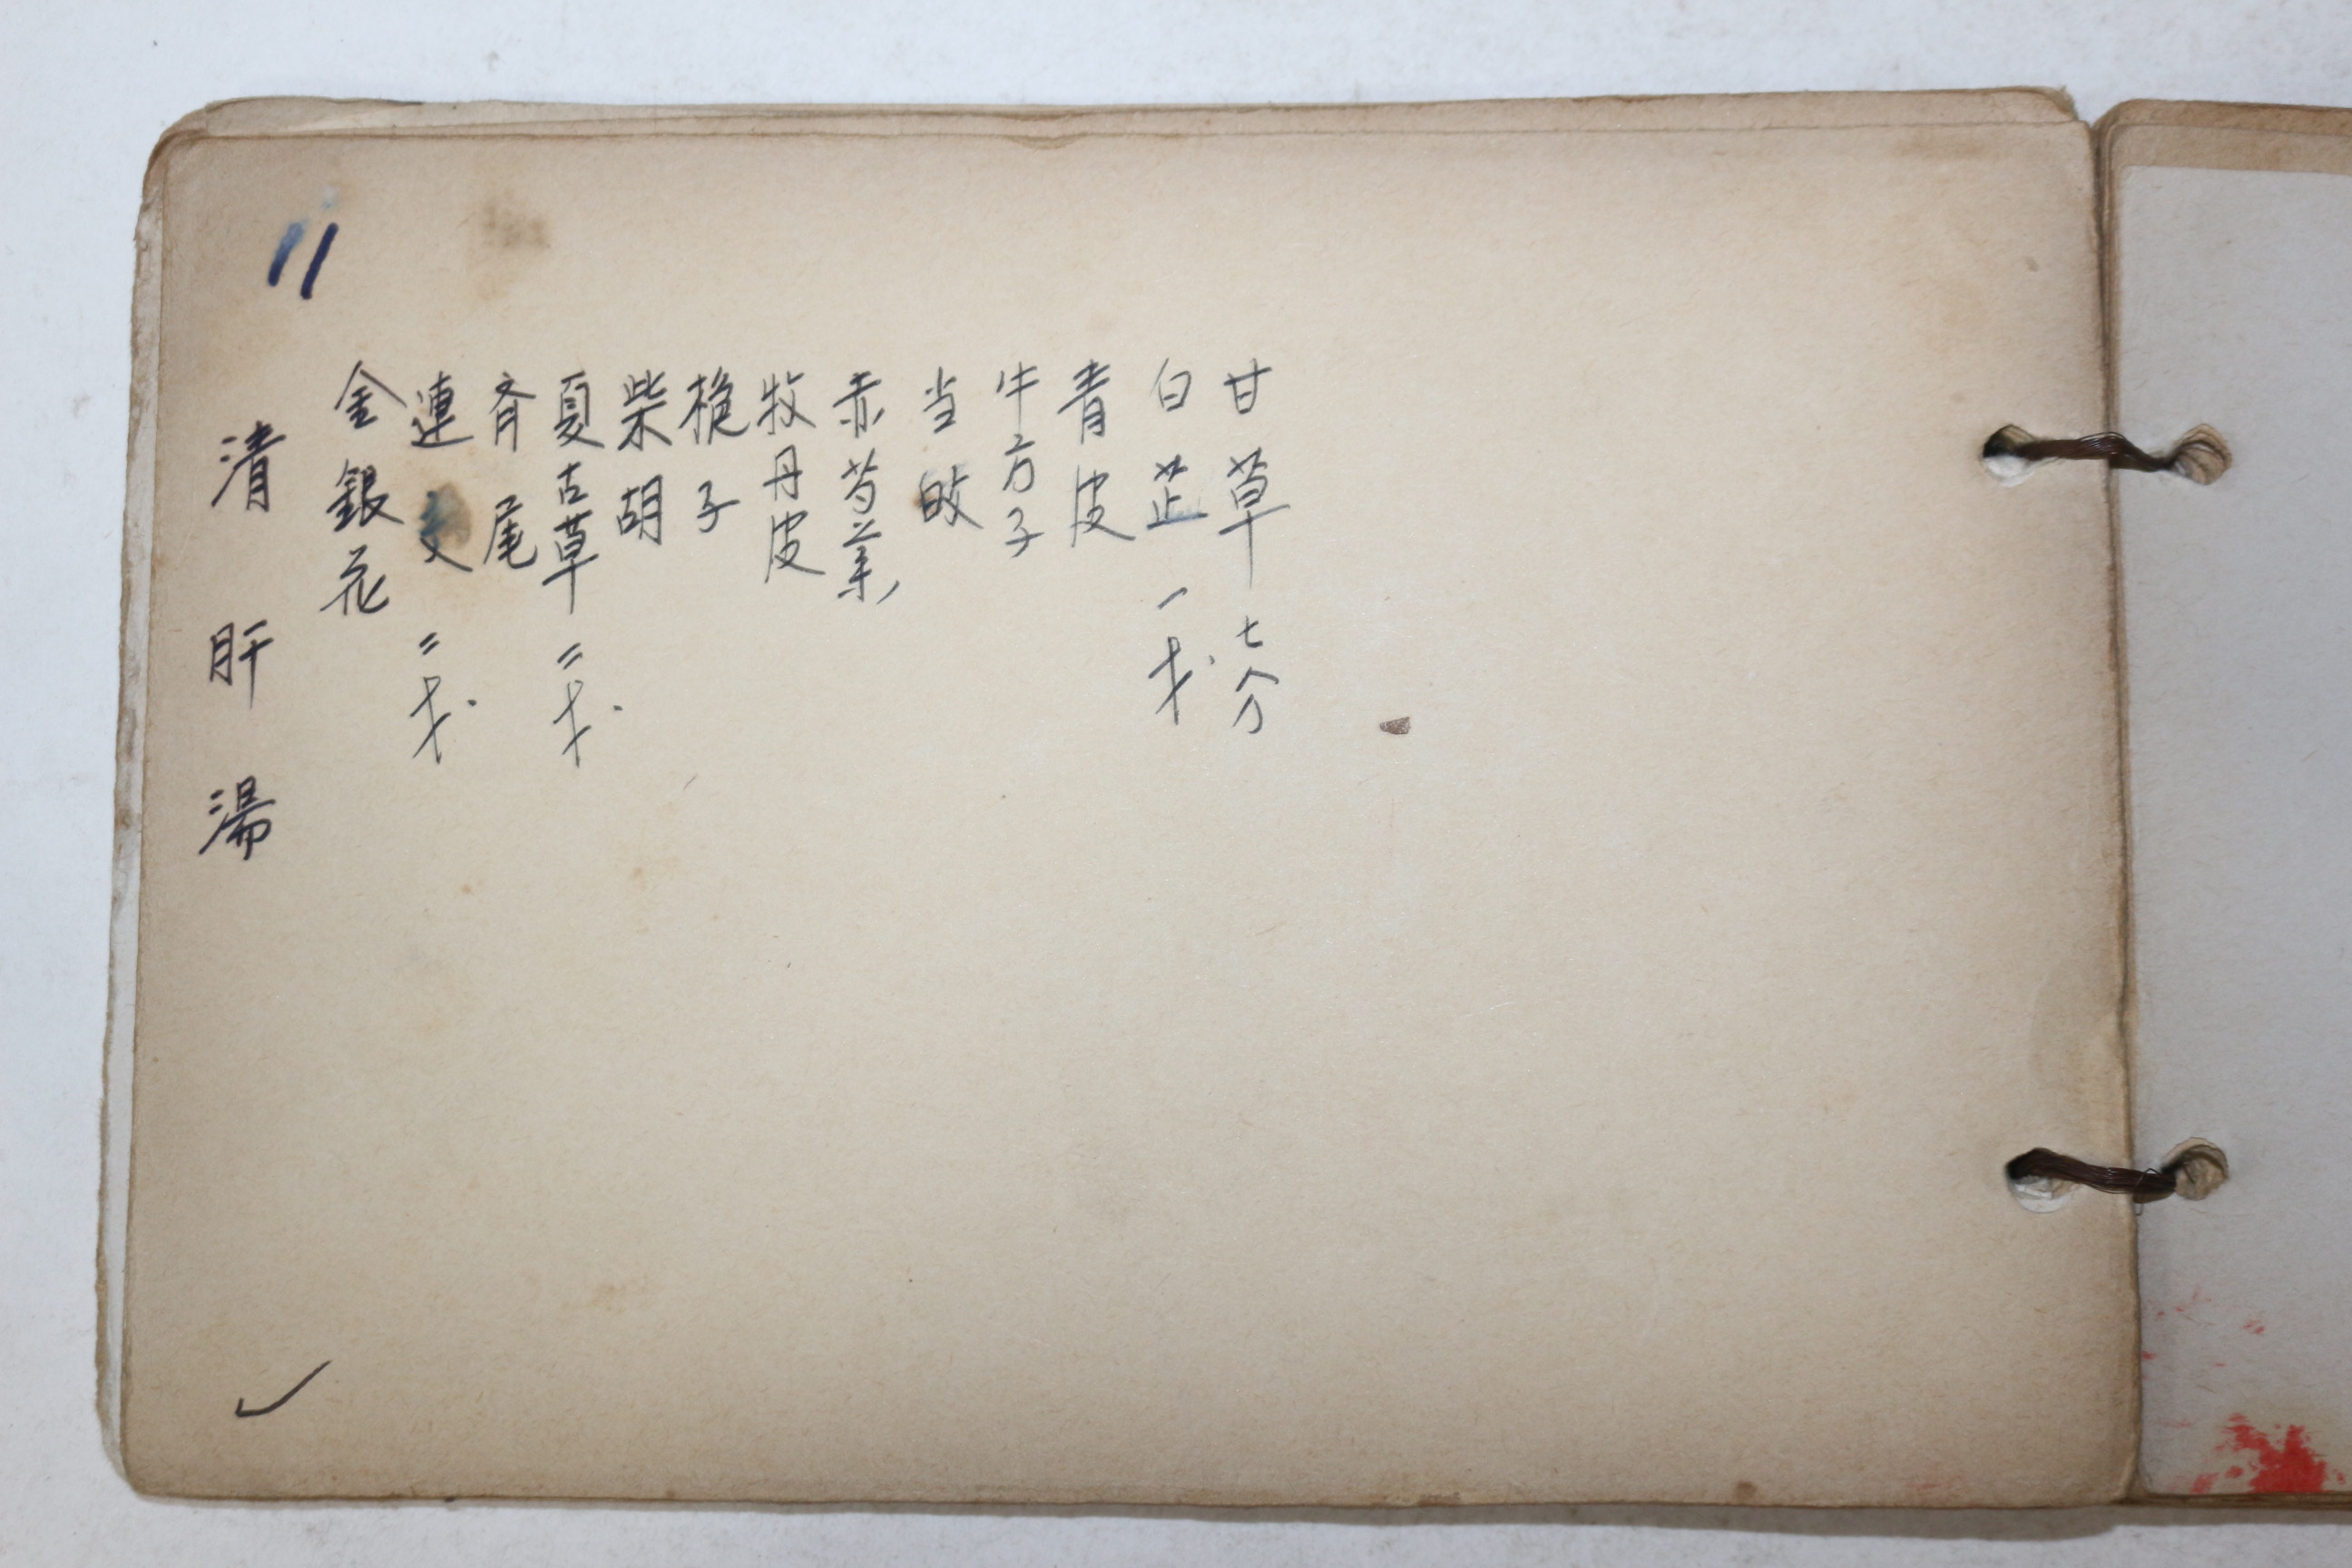 11
清肝湯
金銀花
連 二戋
斉尾
夏古草 二戋
柴胡
桅子
牧丹皮
赤芍薬
当皈
牛方子
青皮
白芷 一戋
甘草 七分